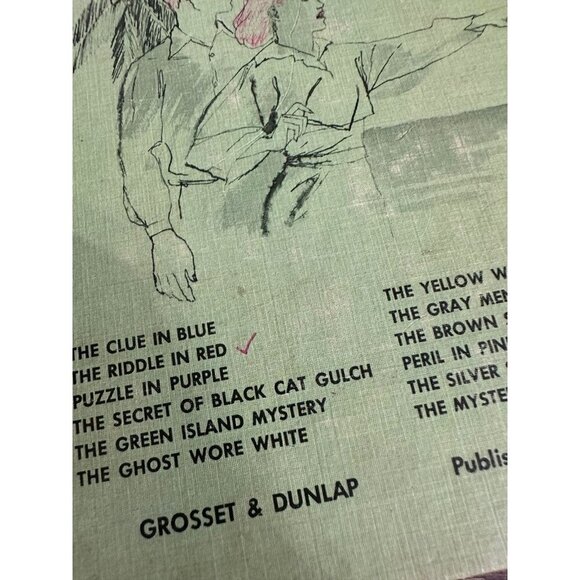 THE CLUE IN BLUE
THE RIDDLE IN RED ✓
PUZZLE IN PURPLE
THE SECRET OF BLACK CAT GULCH
THE GREEN ISLAND MYSTERY
THE GHOST WORE WHITE
THE YELLOW
THE GRAY
THE BROWN
PERIL IN
THE SILVER
THE
GROSSET & DUNLAP